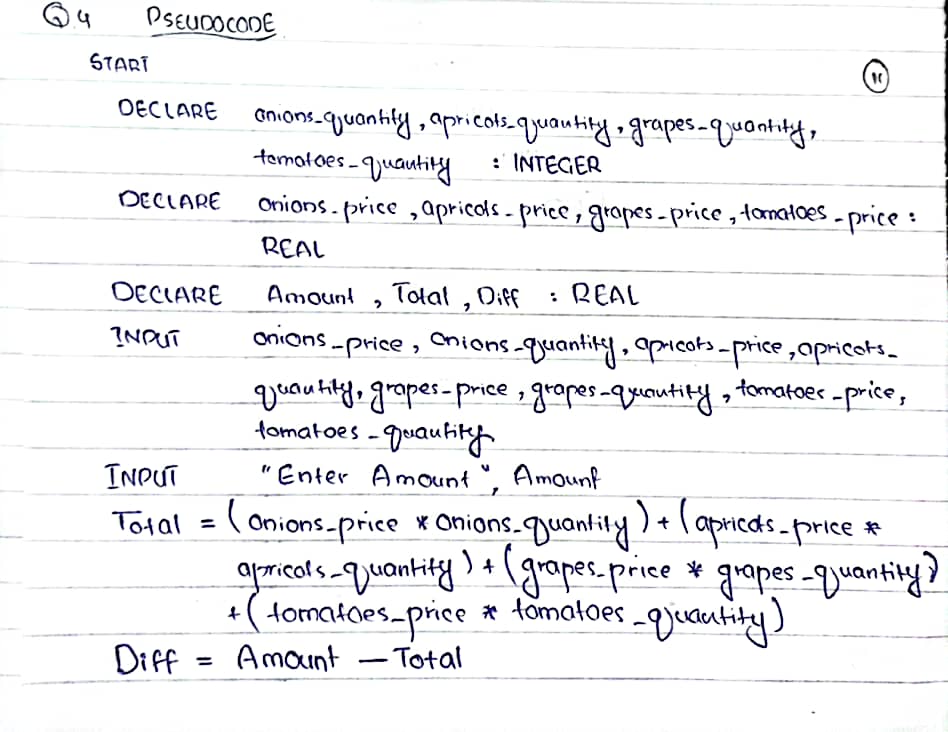 Q.4 PSEUDOCODE
START
DECLARE onions_quantity, apricots_quantity, grapes_quantity,
tomatoes_quantity : INTEGER
DECLARE onions_price, apricots_price, grapes_price, tomatoes_price :
REAL
DECLARE Amount, Total, Diff : REAL
INPUT onions_price, onions_quantity, apricots_price, apricots_
quantity, grapes_price, grapes_quantity, tomatoes_price,
tomatoes_quantity
INPUT "Enter Amount", Amount
Total = (onions_price * onions_quantity) + (apricots_price *
apricots_quantity) + (grapes_price * grapes_quantity)
+ (tomatoes_price * tomatoes_quantity)
Diff = Amount — Total